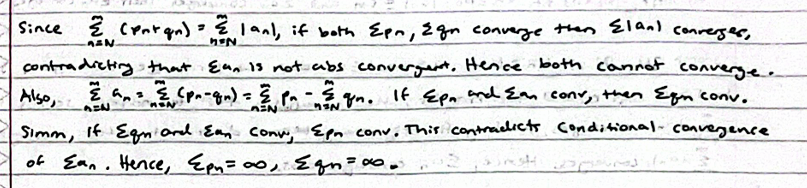 Since $\sum_{n=N}^{m} (p_n+q_n) = \sum_{n=N}^{m} |a_n|$, if both Σpn, Σqn converge then Σ|an| converges,
contradicting that Σan is not abs convergent. Hence both cannot converge.
Also, $\sum_{n=N}^{m} a_n = \sum_{n=N}^{m} (p_n-q_n) = \sum_{n=N}^{m} p_n - \sum_{n=N}^{m} q_n$. If Σpn and Σan conv, then Σqn conv.
Simm, if Σqn and Σan conv, Σpn conv. This contradicts conditional convergence
of Σan. Hence, Σpn = ∞, Σqn = ∞.